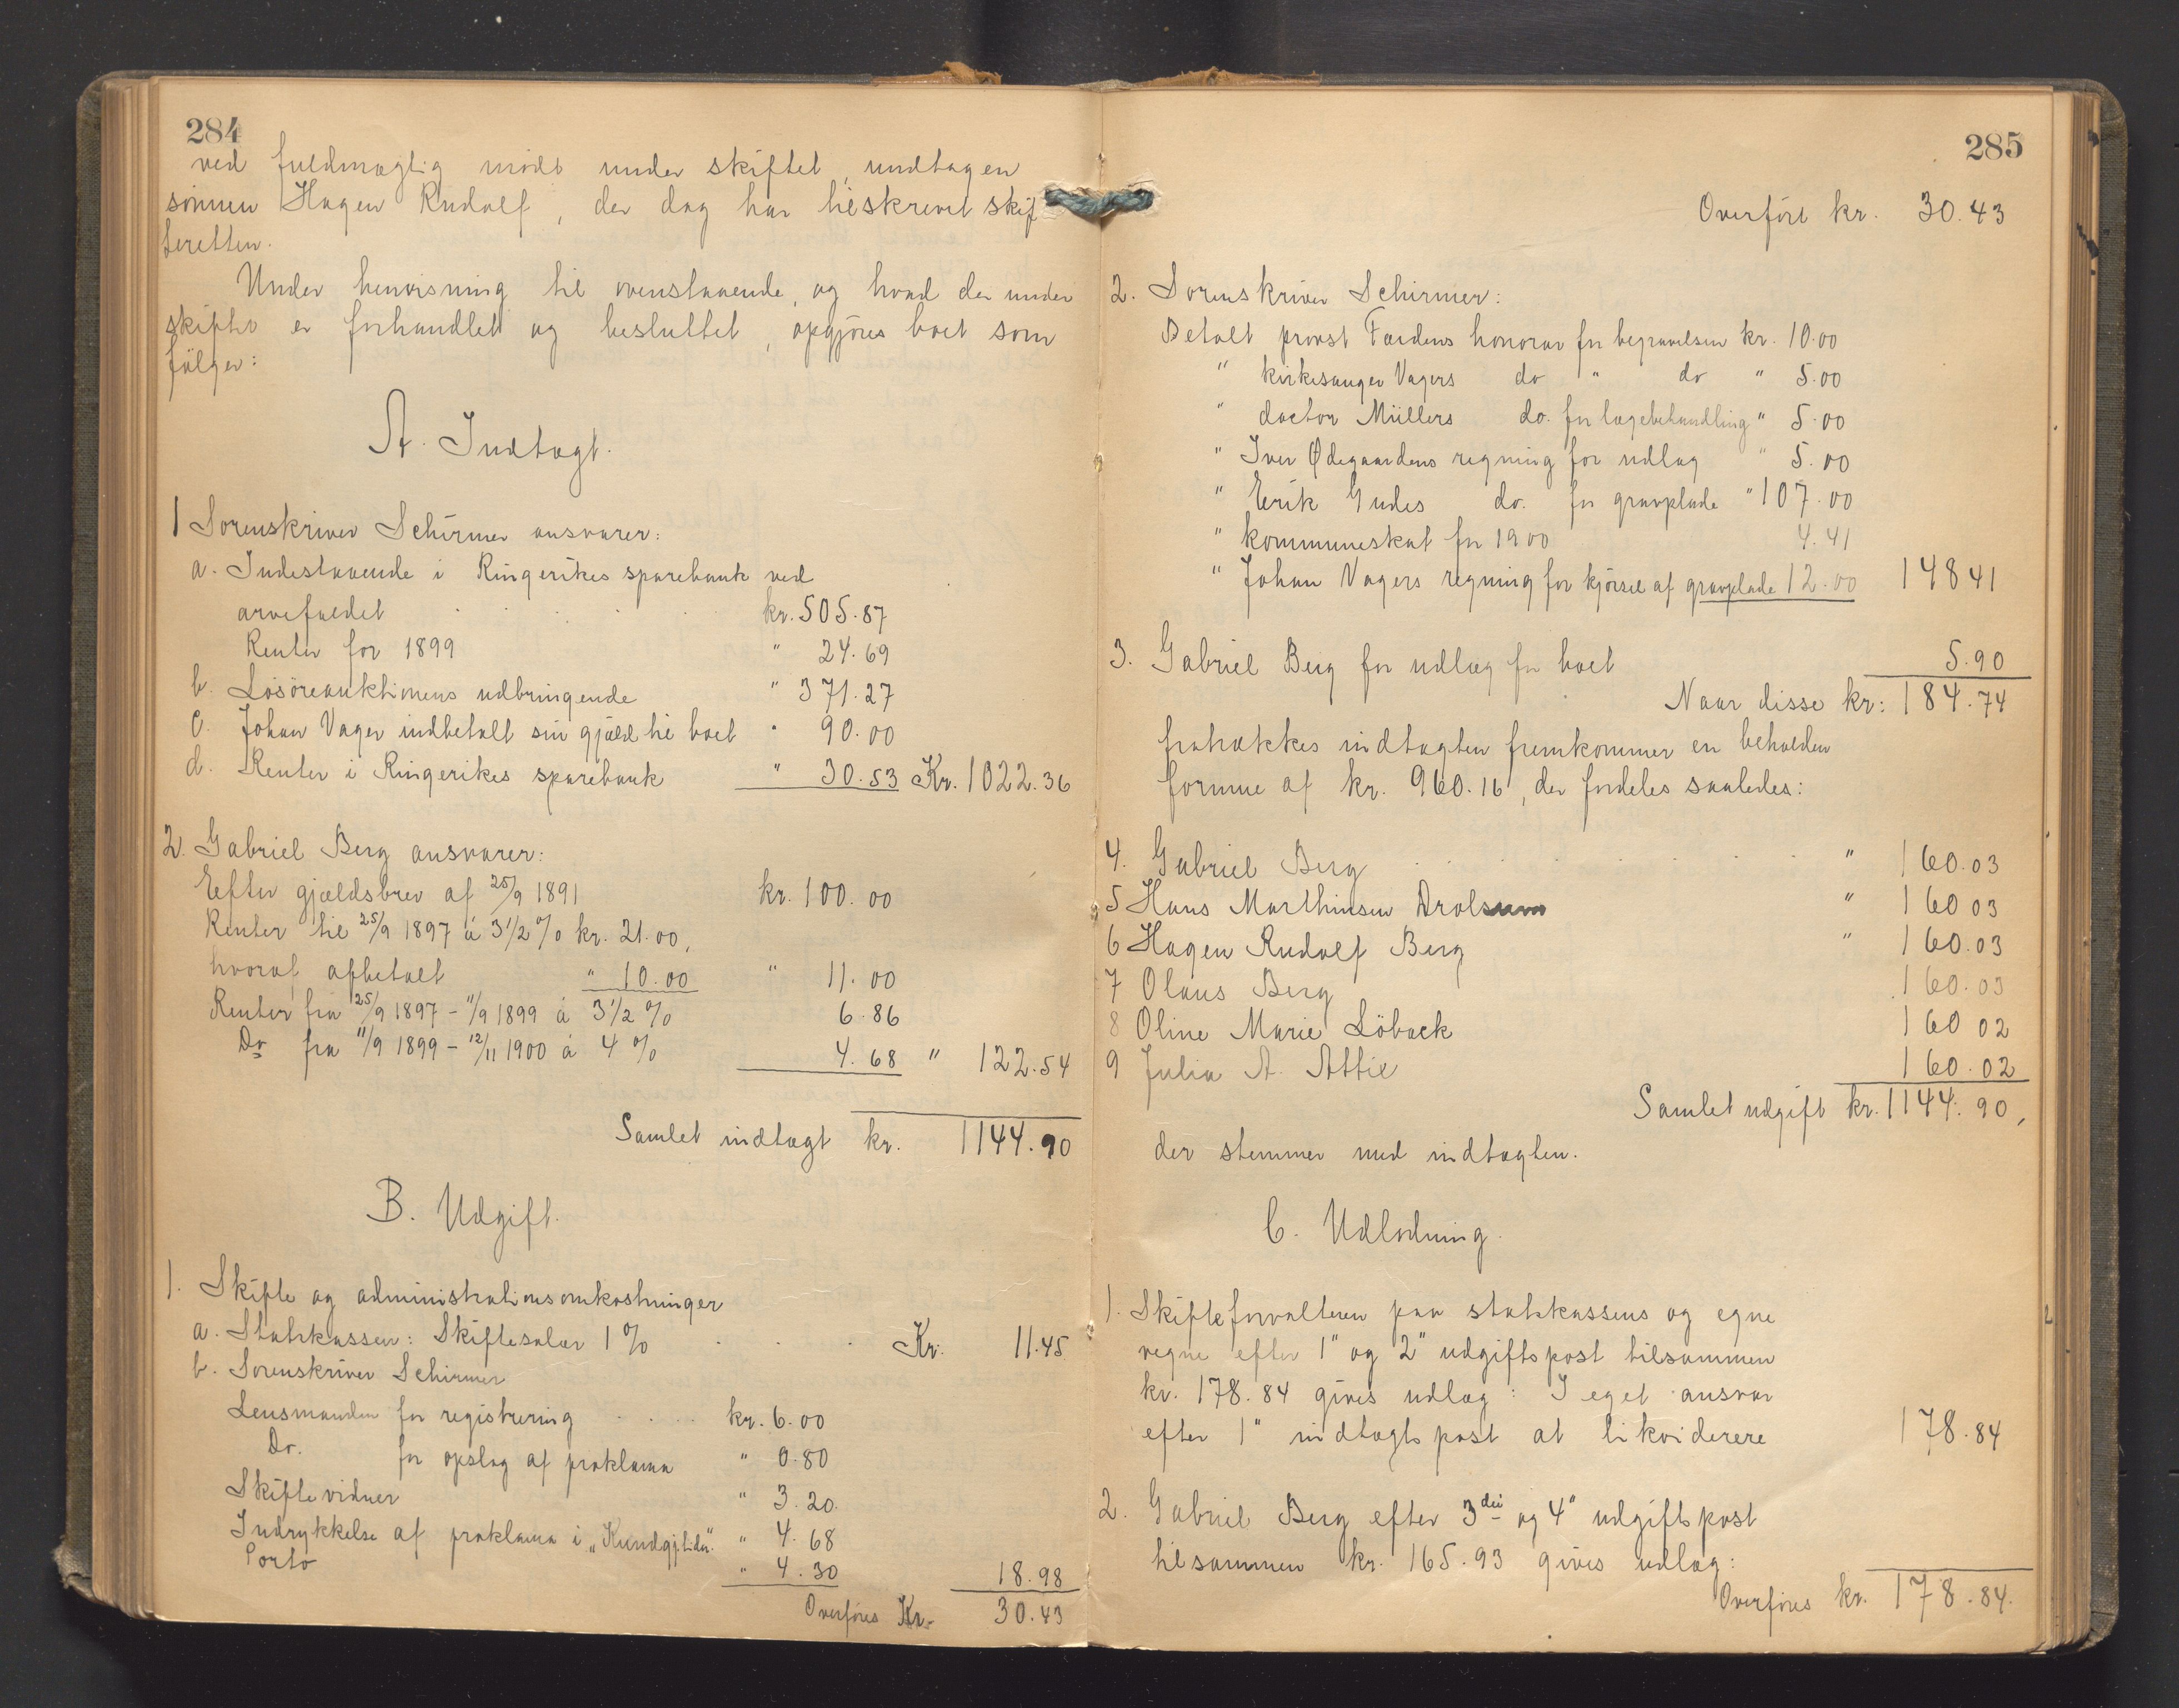 284
ved fuldmægtig mödt under skiftet, undtagen
sönnen Hagen Rudolf, der dog har tilskrevet skif
teretten.
Under henvisning til ovenstaaende, og hvad der under
skiftet er forhandlet og besluttet, opgjöres boet som
fölger:
A. Indtægt.
1 Sorenskriver Schirmer ansvarer:
a. Indestaaende i Ringerikes sparebank ved
arvefaldet kr. 505.87
Renter for 1899 " 24.69
b. Lösöreauktionens udbringende " 371.27
c. Johan Vager indbetalt sin gjæld til boet " 90.00
d. Renter i Ringerikes sparebank " 30.53 Kr. 1022.36
2. Gabriel Berg ansvarer:
Efter gjældsbrev af 25/9 1891 kr. 100.00
Renter til 25/9 1897 á 3 1/2 % kr. 21.00,
hvoraf afbetalt " 10.00 " 11.00
Renter fra 25/9 1897 - 11/9 1899 á 3 1/2 % 6.86
Do fra 11/9 1899 - 12/11 1900 á 4 % 4.68 " 122.54
Samlet indtægt kr. 1144.90
B. Udgift.
1. Skifte og administrationsomkostninger
a. Statskassen: Skiftesalær 1 % Kr. 11.45
b. Sorenskriver Schirmer
Lensmanden for registrering kr. 6.00
Do. for opslag af proklama " 0.80
Skiftevidner " 3.20.
Indrykkelse af proklama i "Kundgj.tid." " 4.68
Porto " 4.30 18.98
Overföres Kr. 30.43
285
Overfört kr. 30.43
2. Sorenskriver Schirmer:
Betalt provst Færdens honorar for begravelsen kr. 10.00
" kirkesanger Vagers do " do " 5.00
" doctor Müllers do. for lægebehandling " 5.00
" Iver Ødegaardens regning for udlæg " 5.00
" Erik Gudes do. for gravplade " 107.00
" kommuneskat for 1900 4.41
" Johan Vagers regning for kjörsel af gravplade 12.00 148 41
3. Gabriel Berg for udlæg for boet 5.90
Naar disse kr: 184.74
fratrækkes indtægten fremkommer en beholden
formue af kr. 960.16, der fordeles saaledes:
4. Gabriel Berg " 160.03
5 Hans Marthinsen Drolsum " 160 03
6 Hagen Rudolf Berg " 160.03
7 Olaus Berg 160.03
8 Oline Marie Löback 160 02
9 Julia A. Attie 160.02
Samlet udgift kr. 1144.90,
der stemmer med indtægten.
C. Udlodning.
1. Skifteforvalteren paa statskassens og egne
vegne efter 1" og 2" udgiftspost tilsammen
kr. 178.84 gives udlæg: I eget ansvar
efter 1" indtægtspost at likviderere 178.84
2. Gabriel Berg efter 3die og 4" udgiftspost
tilsammen kr. 165.93 gives udlæg:
Overföres kr. 178.84.